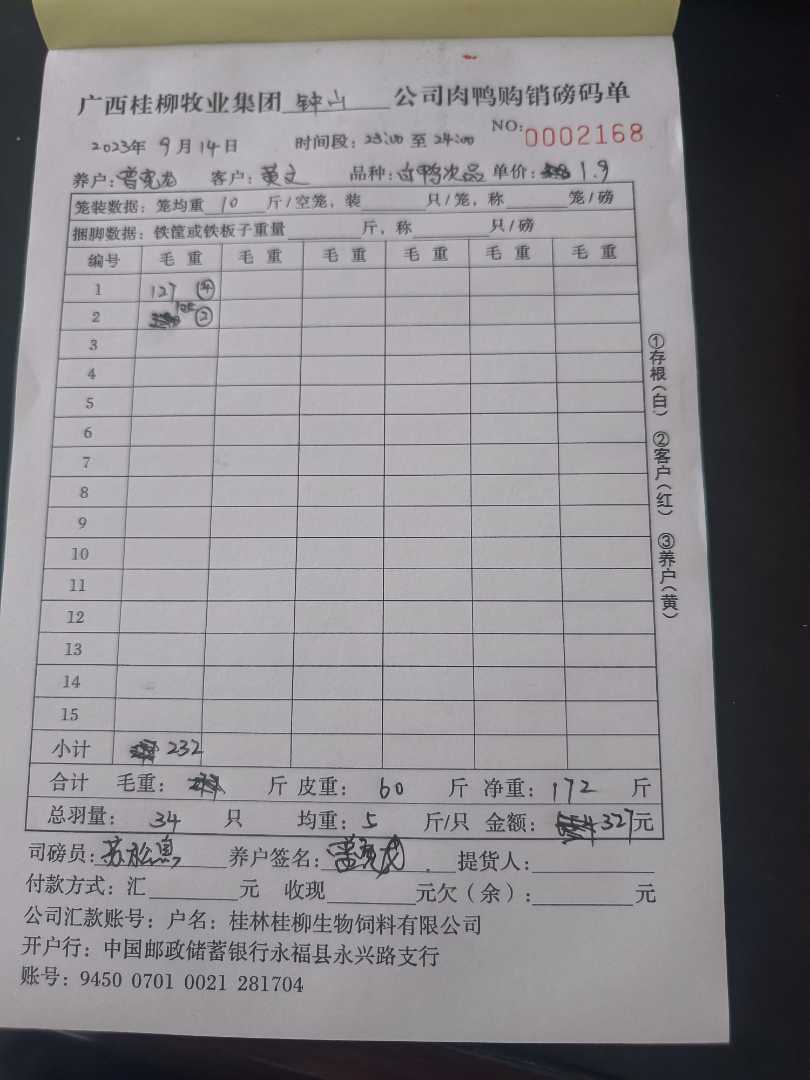 广西桂柳牧业集团 钟山 公司肉鸭购销磅码单
2023年 9月 14日 时间段：23:00 至 24:00 NO: 0002168
养户： 客户：黄文 品种：鸭次品 单价：1.9
笼装数据：笼均重 10 斤/空笼，装____只/笼，称____笼/磅
捆脚数据：铁筐或铁板子重量____斤，称____只/磅
编号 毛重 毛重 毛重 毛重 毛重 毛重
1 127 ④
2 105 ②
3
4
5
6
7
8
9
10
11
12
13
14
15
小计 232
合计 毛重： 斤 皮重：60 斤 净重：172 斤
总羽量：34 只 均重：5 斤/只 金额：327元
司磅员： 养户签名： 提货人：
付款方式：汇____元 收现____元欠（余）：____元
公司汇款账号：户名：桂林桂柳生物饲料有限公司
开户行：中国邮政储蓄银行永福县永兴路支行
账号：9450 0701 0021 281704
①存根（白） ②客户（红） ③养户（黄）